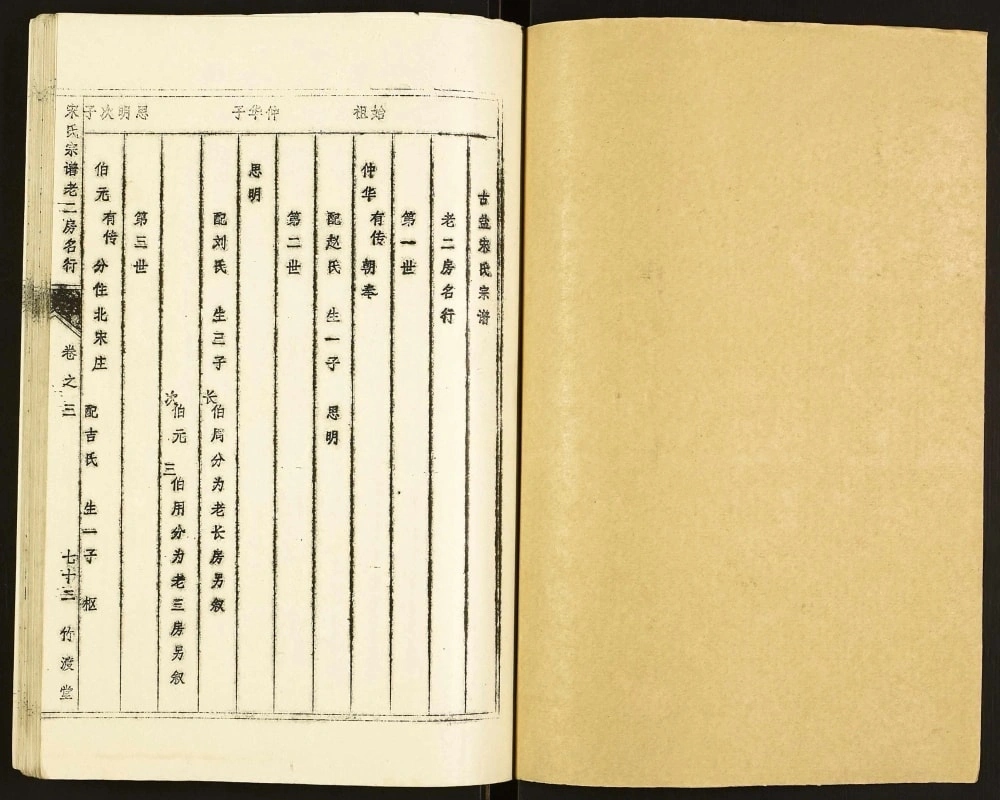 始祖
仲华子
思明次子
古盐宋氏宗谱
老二房名行
第一世
仲华 有传 朝奉
配赵氏 生一子 思明
第二世
思明
配刘氏 生三子 长伯周分为老长房另叙
次伯元 三伯用分为老三房另叙
第三世
伯元 有传 分住北宋庄
配吉氏 生一子 枢
宋氏宗谱老二房名行 卷之三 七十三 竹渡堂